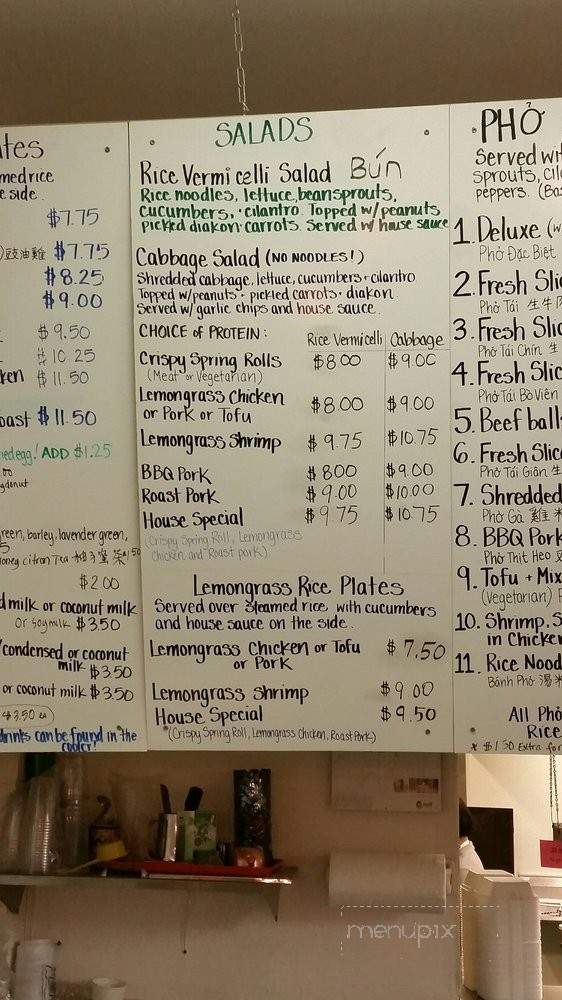 SALADS
Rice Vermicelli Salad Bún
Rice noodles, lettuce, beansprouts,
cucumbers, · cilantro. Topped w/peanuts
pickled diakon · carrots. Served w/ house sauce
Cabbage Salad (NO NOODLES!)
Shredded cabbage, lettuce, cucumbers · cilantro
Topped w/peanuts + pickled carrots · diakon
Served w/ garlic chips and house sauce.
CHOICE OF PROTEIN: Rice Vermicelli Cabbage
Crispy Spring Rolls $8.00 $9.00
(Meat or Vegetarian)
Lemongrass Chicken
or Pork or Tofu $8.00 $9.00
Lemongrass Shrimp $9.75 $10.75
BBQ Pork $8.00 $9.00
Roast Pork $9.00 $10.00
House Special $9.75 $10.75
(Crispy Spring Roll, Lemongrass
Chicken and Roast pork)
Lemongrass Rice Plates
Served over steamed rice with cucumbers
and house sauce on the side.
Lemongrass Chicken or Tofu $7.50
or Pork
Lemongrass Shrimp $9.00
House Special $9.50
(Crispy Spring Roll, Lemongrass Chicken, Roast Pork)
tes
med rice
e side
$7.75
豉油雞 $7.75
$8.25
$9.00
$9.50
$10.25
ken $11.50
oast $11.50
ied egg! ADD $1.25
reen, barley, lavender green,
Honey citron Tea
$2.00
d milk or coconut milk
or soymilk $3.50
condensed or coconut
milk $3.50
or coconut milk $3.50
$3.50 ea
drinks can be found in the
cooler!
PHỞ
Served wit
sprouts, cil
peppers. (Ba
1. Deluxe (w
Phở Đặc Biệt
2. Fresh Slic
Phở Tái 生牛
3. Fresh Slic
Phở Tái Chín 生
4. Fresh Slic
Phở Tái Bò Viên
5. Beef ball
6. Fresh Slice
Phở Tái Gân 生
7. Shredded
Phở Gà 雞
8. BBQ Pork
Phở Thịt Heo
9. Tofu + Mix
(Vegetarian)
10. Shrimp, S
in Chicken
11. Rice Nood
Bánh Phở 湯
All Phở
Rice
* $1.50 Extra for
menupix